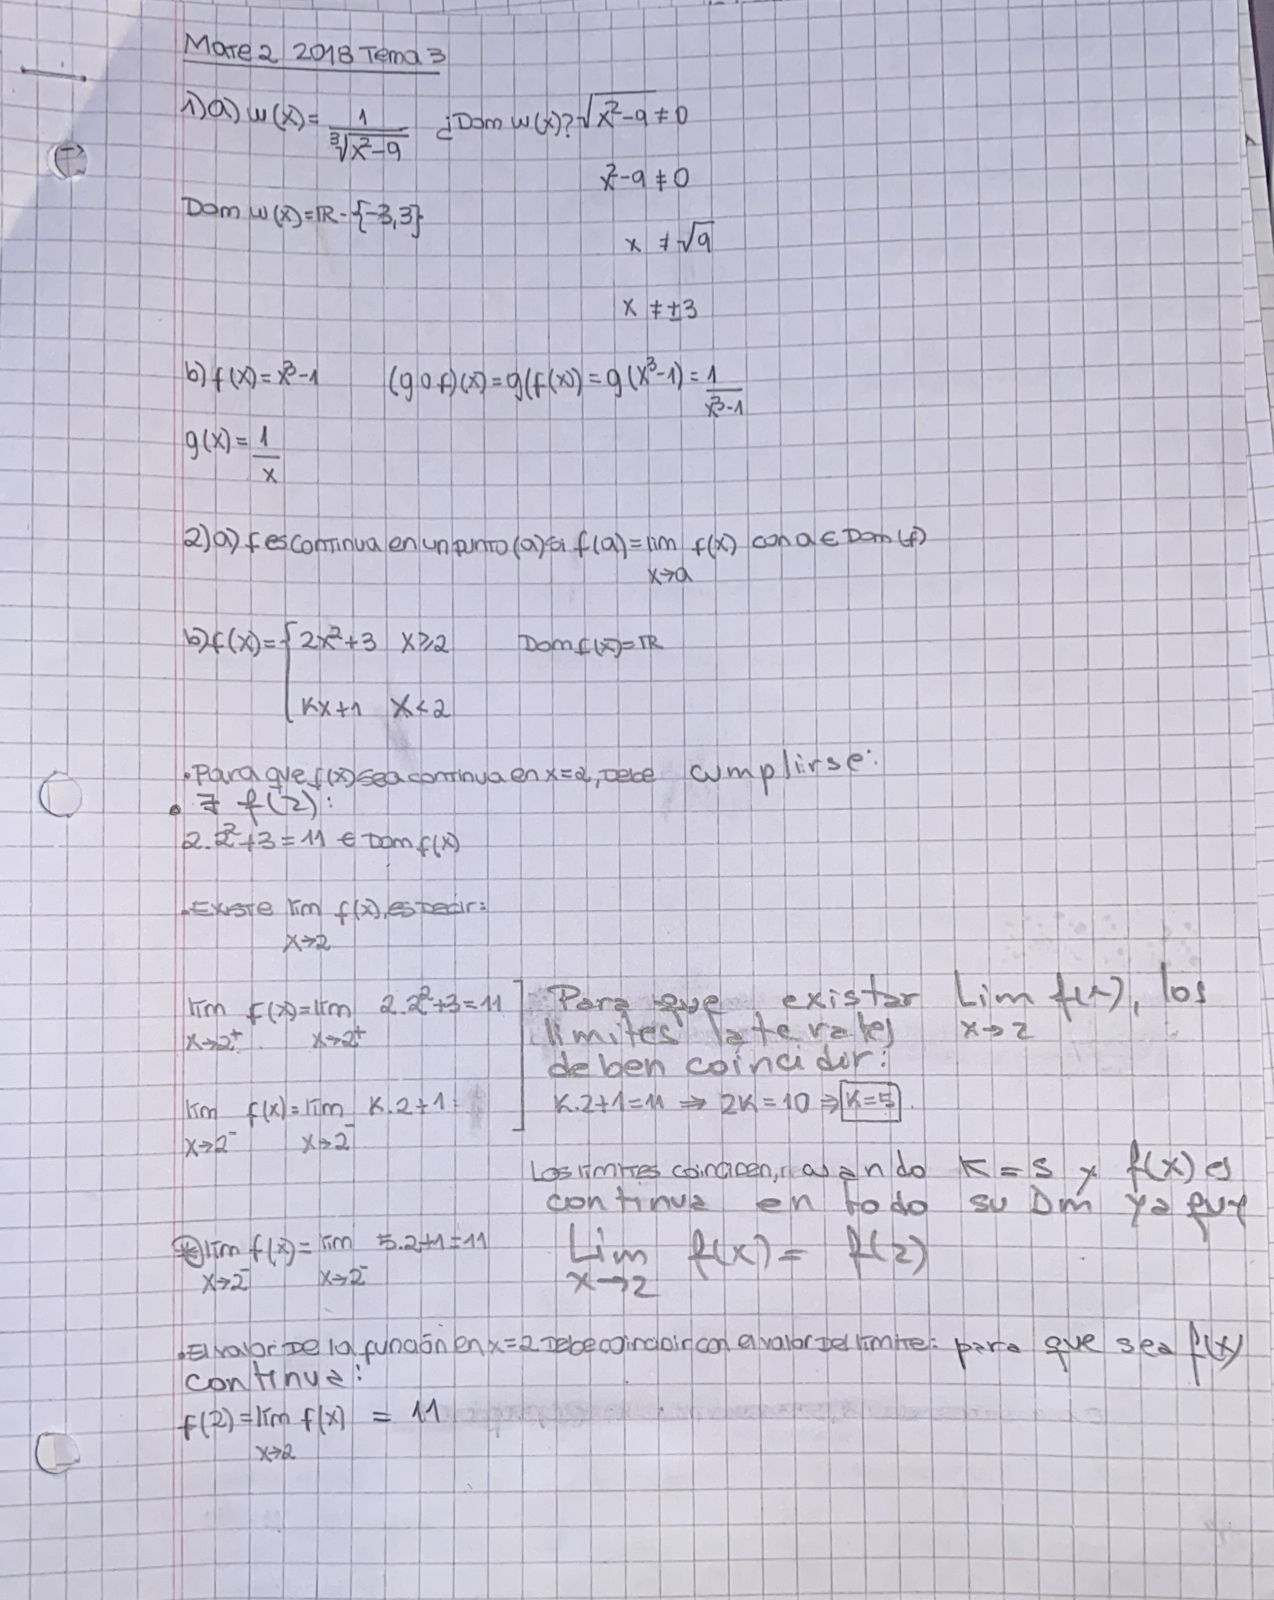 Mate 2 2018 Tema 3
1) a) w(x) = 1/∛(x²-9) ¿Dom w(x)? √(x²-9) ≠ 0
x²-9 ≠ 0
Dom w(x) = ℝ - {-3, 3}
x ≠ √9
x ≠ ±3
b) f(x) = x³-1 (g o f)(x) = g(f(x)) = g(x³-1) = 1/(x³-1)
g(x) = 1/x
2) a) f es continua en un punto (a) si f(a) = lim x→a f(x) con a ∈ Dom (f)
b) f(x) = { 2x²+3 x ≥ 2 Dom f(x) = ℝ
kx+1 x < 2
• Para que f(x) sea continua en x=2, debe cumplirse:
• ∃ f(2):
2.2²+3 = 11 ∈ Dom f(x)
• Existe lim x→2 f(x), es decir:
lim x→2⁺ f(x) = lim x→2⁺ 2.2²+3 = 11
lim x→2⁻ f(x) = lim x→2⁻ k.2+1
Para que existar Lim x→2 f(x), los
límites laterales
deben coincidir:
k.2+1 = 11 ⇒ 2k = 10 ⇒ k=5.
Los límites coinciden, cuando k=5 y f(x) es
continua en todo su Dm ya que
Lim x→2 f(x) = f(2)
lim x→2⁻ f(x) = lim x→2⁻ 5.2+1 = 11
• El valor de la función en x=2 debe coincidir con el valor del límite: para que sea f(x)
continua:
f(2) = lim x→2 f(x) = 11